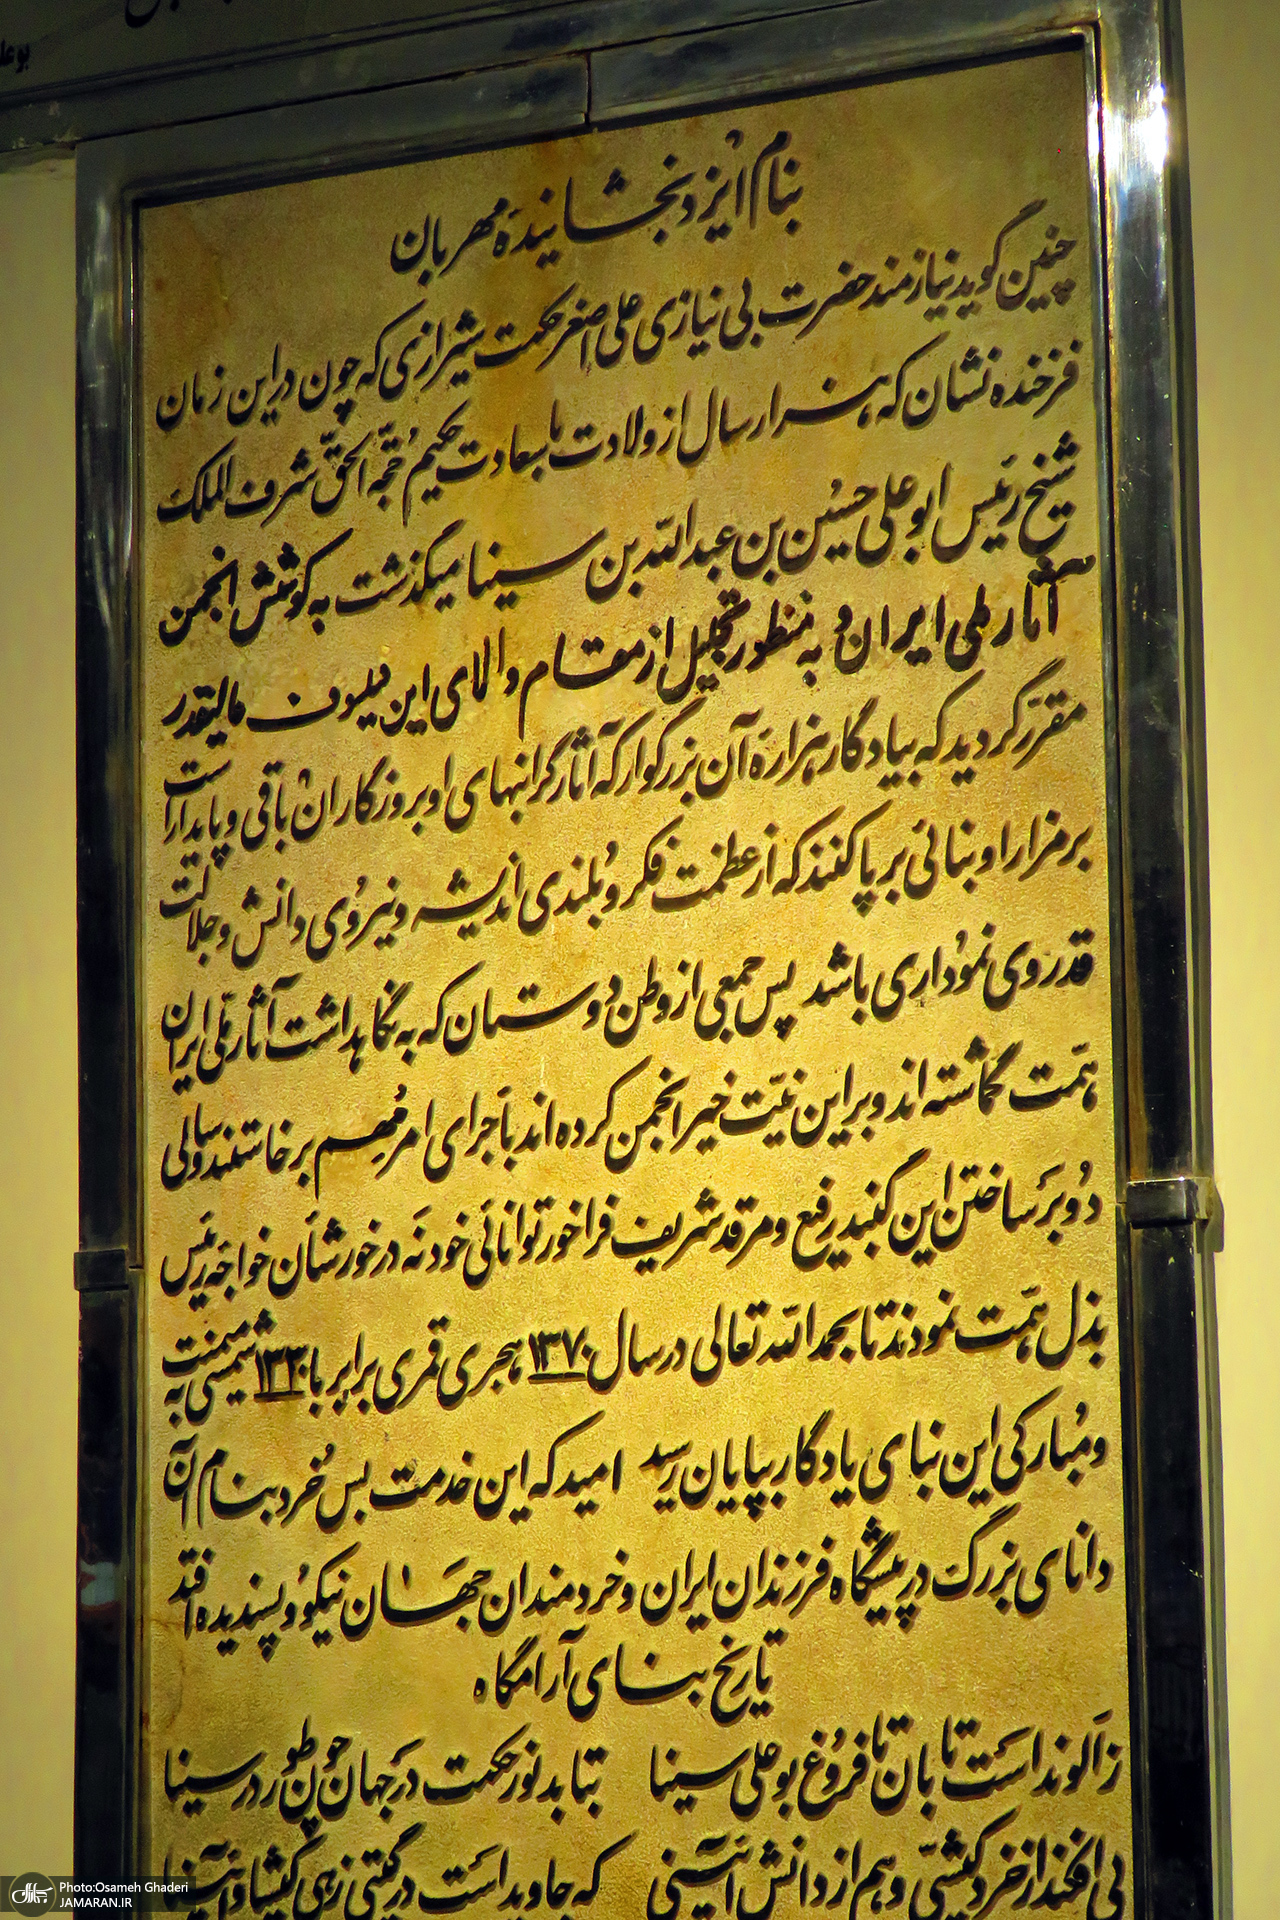 بوعلی
بنام ایزد بخشاینده مهربان
چنین گوید نیازمند حضرت بی نیازی علی اصغر حکمت شیرازی که چون در این زمان
فرخنده نشان که هزار سال از ولادت با سعادت حکیم حُجّة الحقّ شرف الملک
شیخ رئیس ابوعلی حسین بن عبدالله بن سینا میگذشت به کوشش انجمن
آثار ملی ایران و به منظور تجلیل از مقام والای این فیلسوف عالیقدر
مقرّر گردید که بیادگار هزارهٔ آن بزرگوار که آثار گرانبهای او بروزگاران باقی و پایدار است
بر مزار او بنائی برپا کنند که از عظمت فکر و بُلندی اندیشه و نیرُوی دانش و جلالت
قدر وی نمُوداری باشد پس جمعی از وطن دوستان که به نگاهداشت آثار ملّی ایران
همّت گماشته اند و بر این نیّت خیر انجمن کرده اند باجرای امر مُهِم برخاستند و سالی
دُو بر ساختن این گنبد رفیع و مرقد شریف فراخور توانائی خود نَه در خور شأن خواجهٔ رئیس
بذل همّت نمودند تا بحمد الله تعالی در سال ۱۳۷۰ هجری قمری برابر با ۱۳۳۰ شمسی به میمنت
و مُبارکی این بنای یادگار بپایان رسید امید که این خدمت بس خُرد بنام آن
دانای بزرگ در پیشگاه فرزندان ایران و خردمندان جهان نیکو و پسندیده افتد
تاریخ بنای آرامگاه
ز الوند است تابان تا فروغ بوعلی سینا بتابد نور حکمت در جهان چون طور در سینا
پی افکند از خرد کیشی و هم از دانش آئینی که جاوید است در گیتی زهی کیشا و آئینا
Photo:Osameh Ghaderi
JAMARAN.IR